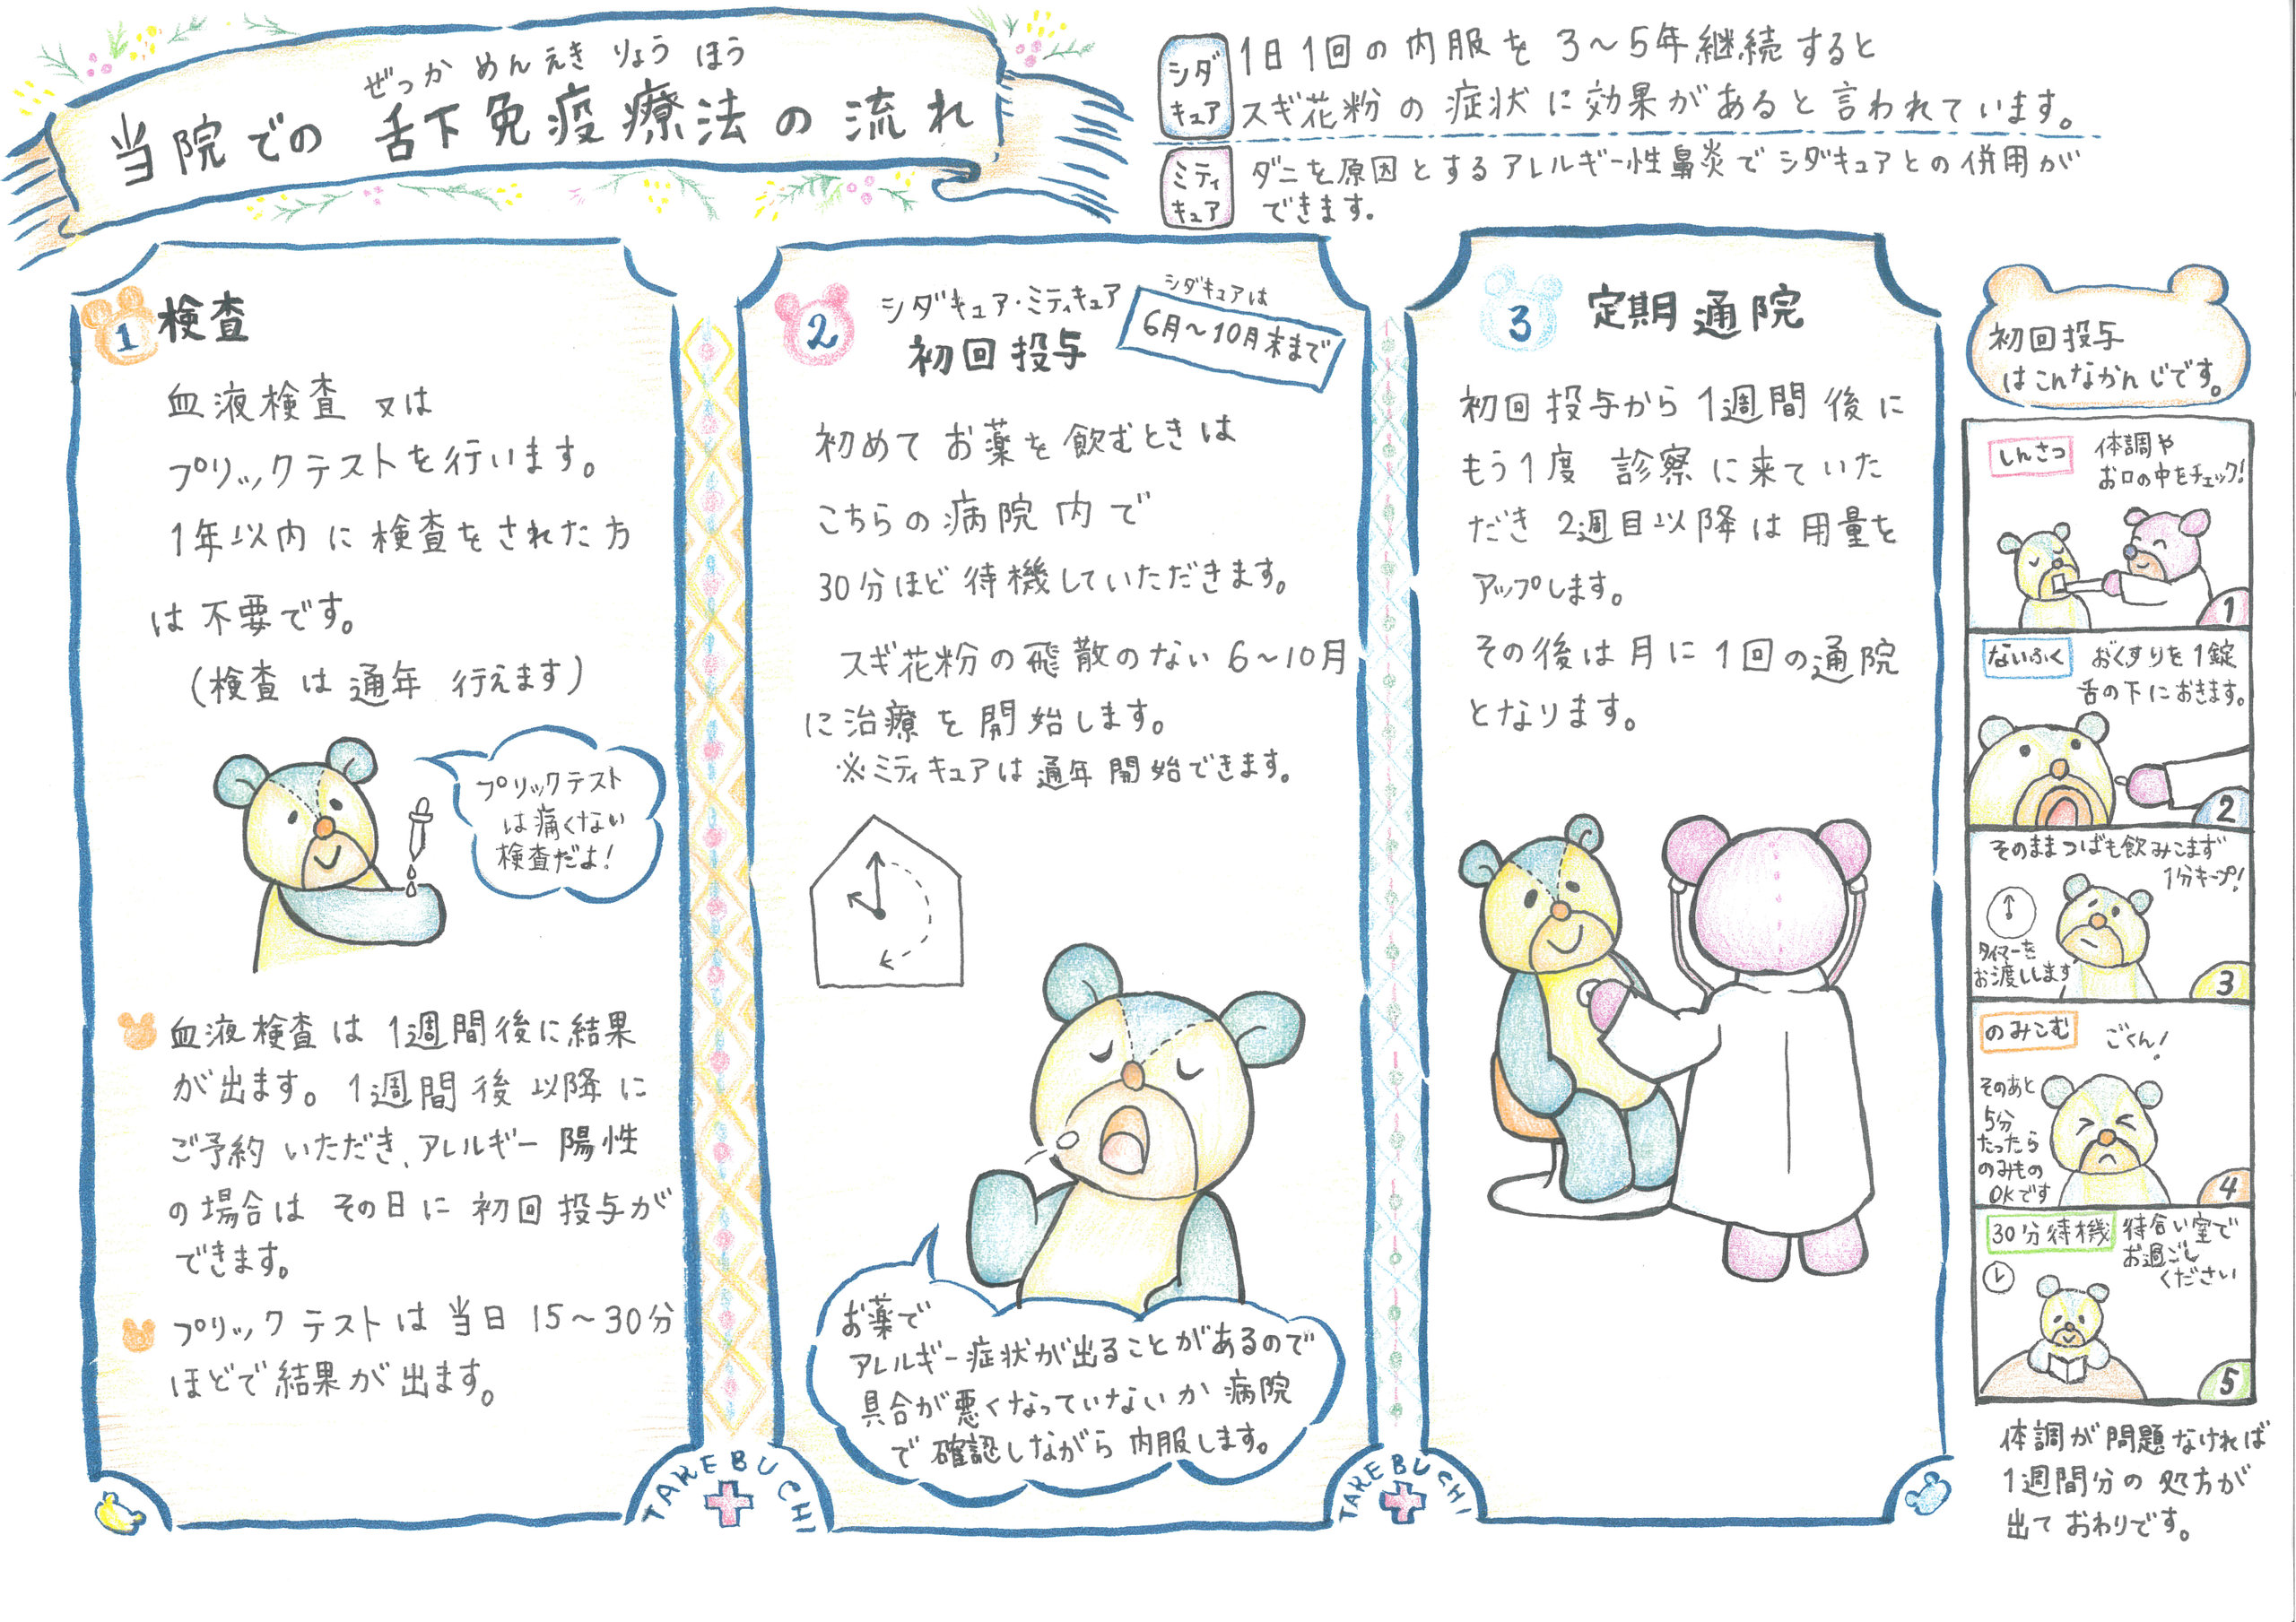 ぜっか めんえき りょう ほう
当院での 舌下免疫療法の流れ
シダキュア
1日1回の内服を3～5年継続すると
スギ花粉の症状に効果があると言われています。
ミティキュア
ダニを原因とするアレルギー性鼻炎でシダキュアとの併用が
できます。
1 検査
血液検査 又は
プリックテストを行います。
1年以内に検査をされた方
は不要です。
(検査は通年 行えます)
プリックテスト
は痛くない
検査だよ!
血液検査は1週間後に結果
が出ます。1週間後以降に
ご予約いただき、アレルギー陽性
の場合はその日に初回投与が
できます。
プリックテストは当日15～30分
ほどで結果が出ます。
2 シダキュア・ミティキュア
初回投与
シダキュアは
6月～10月末まで
初めてお薬を飲むときは
こちらの病院内で
30分ほど待機していただきます。
スギ花粉の飛散のない6～10月
に治療を開始します。
※ミティキュアは通年開始できます。
お薬で
アレルギー症状が出ることがあるので
具合が悪くなっていないか病院
で確認しながら内服します。
3 定期通院
初回投与から1週間後に
もう1度 診察に来ていた
だき 2週目以降は用量を
アップします。
その後は月に1回の通院
となります。
TAKEBUCHI
TAKEBUCHI
初回投与
はこんなかんじです。
しんさつ
体調や
お口の中をチェック!
1
ないふく
おくすりを1錠
舌の下におきます。
2
そのままつばも飲みこまず
1分キープ!
タイマーを
お渡しします
3
のみこむ
ごくん!
そのあと
5分
たったら
のみもの
OKです
4
30分待機
待合い室で
お過ごし
ください
5
体調が問題なければ
1週間分の処方が
出ておわりです。